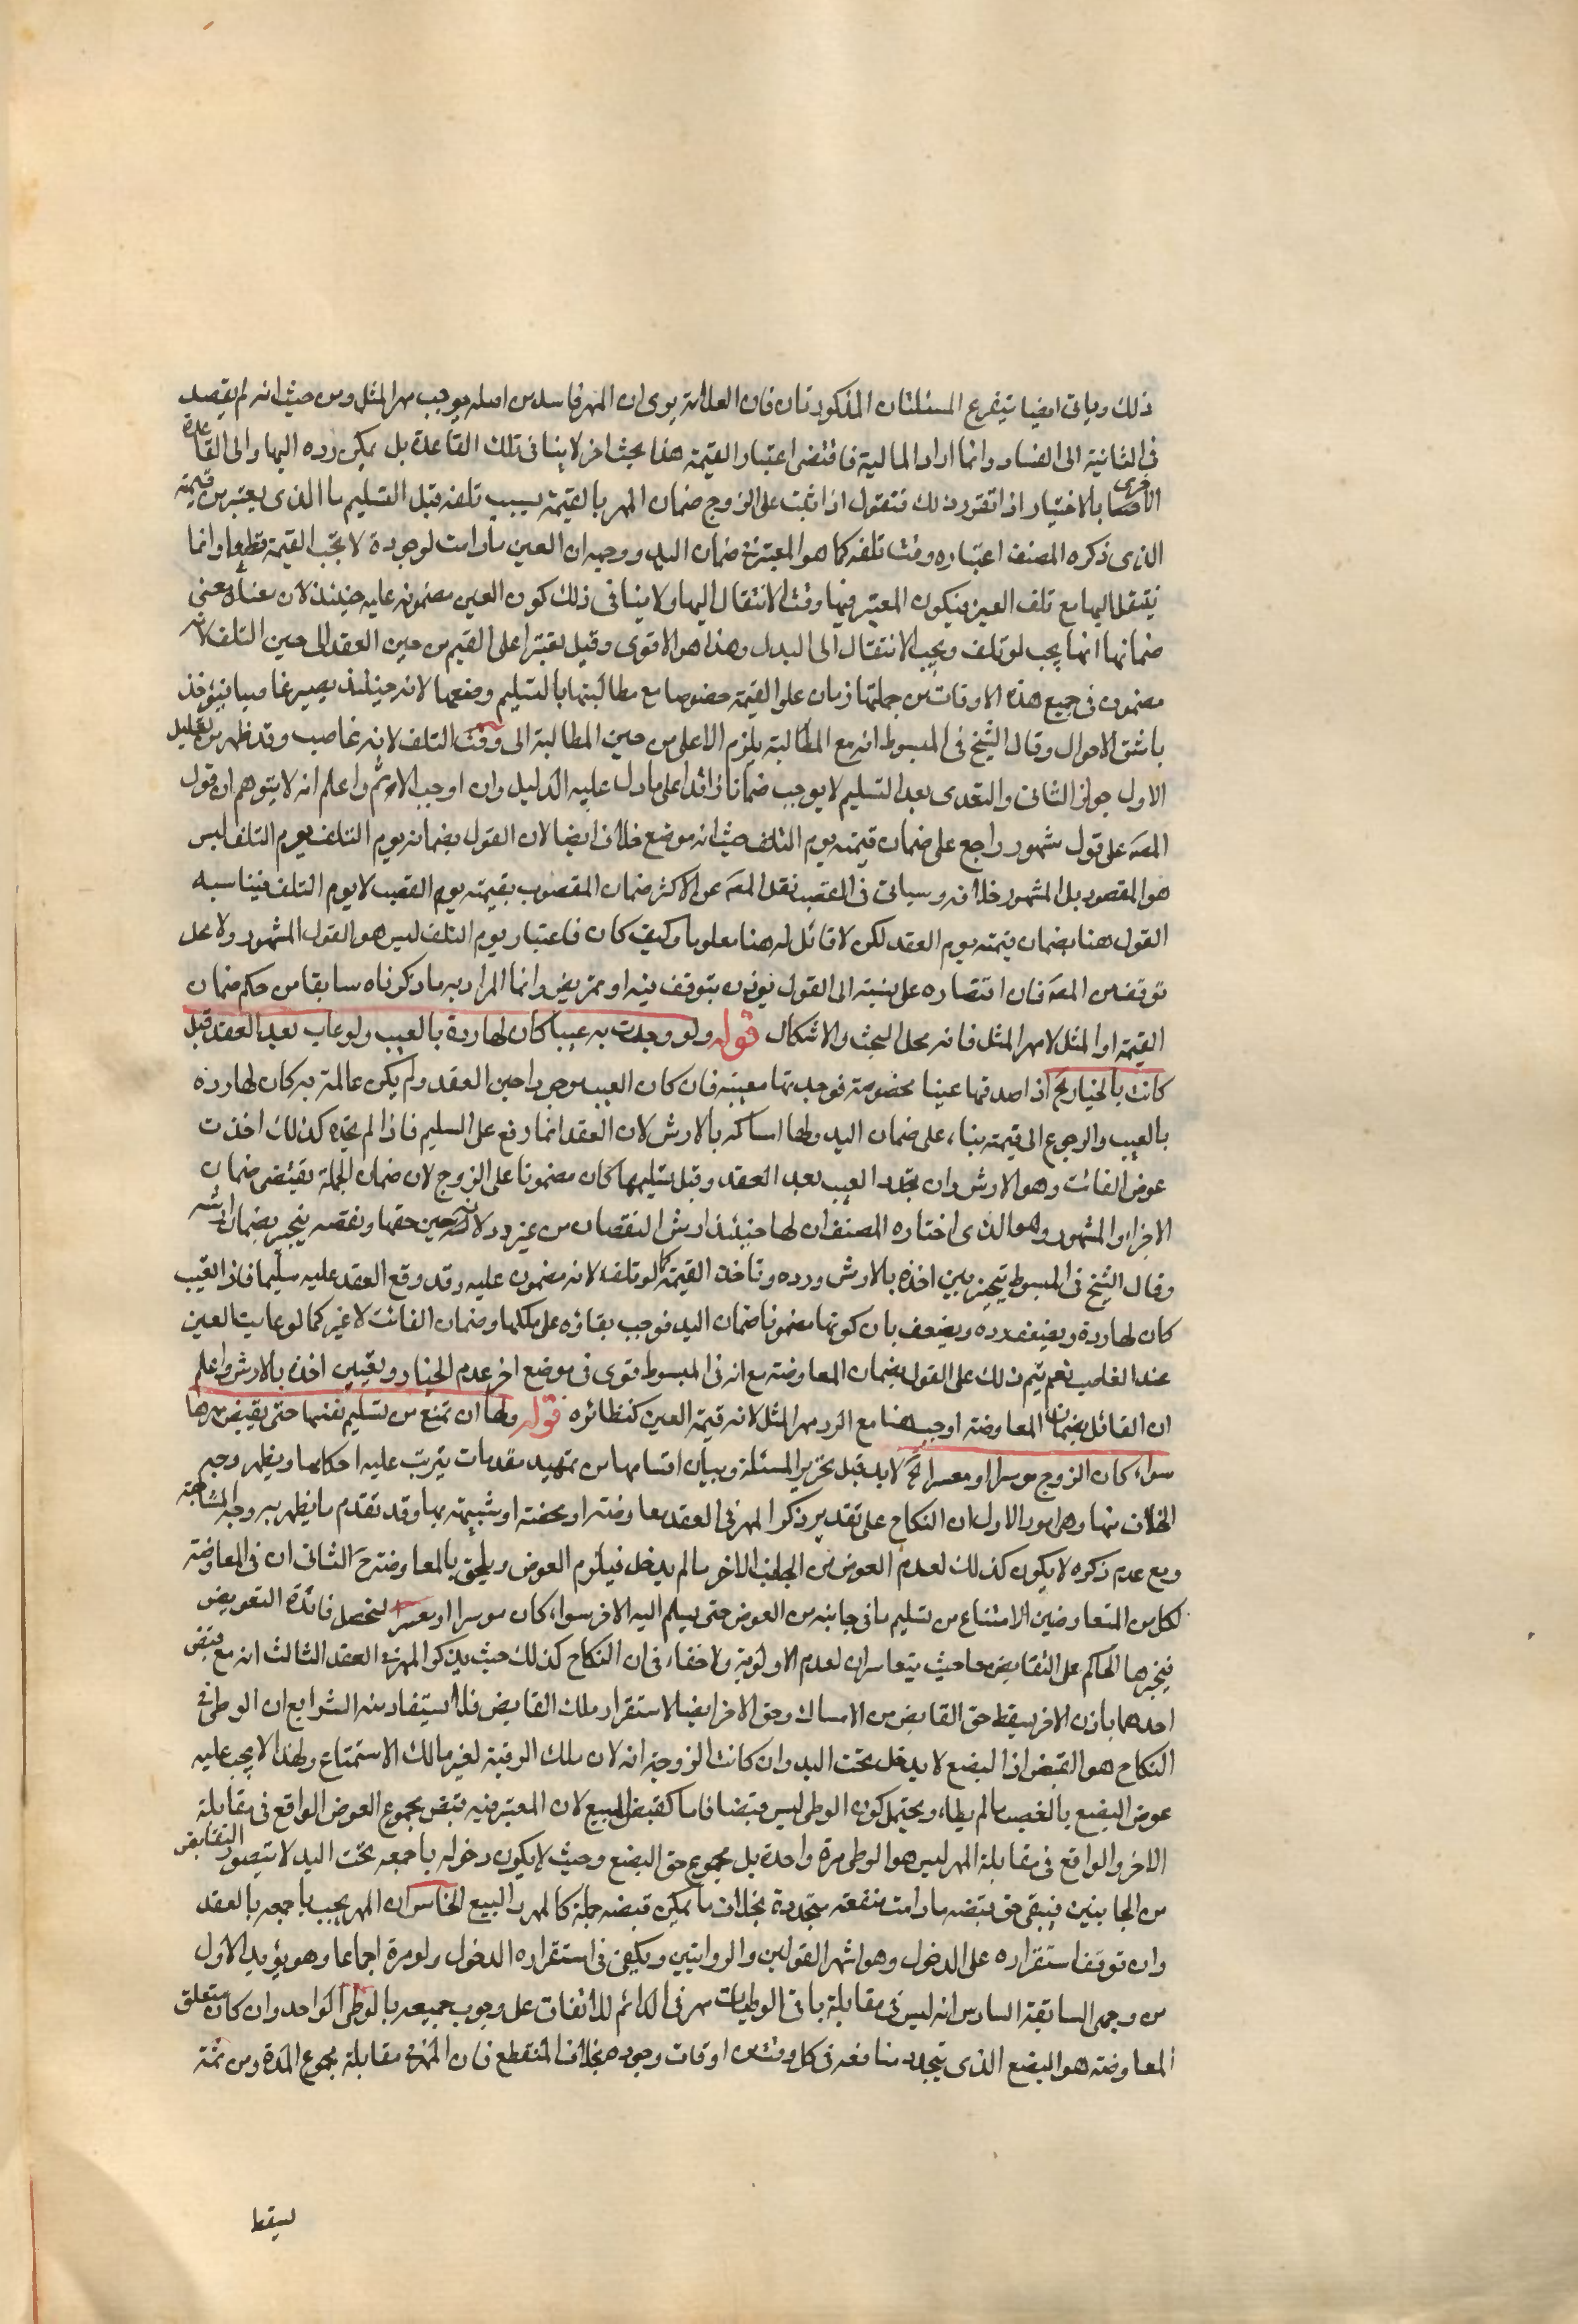 ذلك وياتى ايضا يتفرع المسئلتان المذكورتان فان العلامة يرى ان المهر فاسد من اصله يوجب مهر المثل ومن حيث انه لم يقصد
فى الثانية الى الفساد وانما اراد المالية فاقتضى اعتبار القيمة هذا بحث اخر لا ينافى تلك القاعدة بل يمكن رده اليها والى القاعدة
الاخرى بالاختيار اذا تقرر ذلك فنقول اذا ثبت على الزوج ضمان المهر بالقيمة بسبب تلفه قبل التسليم ما الذى يعتبر من قيمته
الذى ذكره المصنف اعتباره وقت تلفه كما هو المعتبر فى ضمان اليد ووجهه ان العين ما دامت لوجودة لا تجب القيمة قطعا وانما
ينتقل اليها مع تلف العين فيكون المعتبر فيها وقت الانتقال اليها ولا ينافى ذلك كون العين مضمونه عليه حينئذ لان معناه معنى
ضمانها انها يجب لو تلف ويجب الانتقال الى البدل وهذا هو الاقوى وقيل يعتبر اعلى القيم من حين العقد الى حين التلف لانه
مضمون فى جميع هذه الاوقات من جملتها زمان علو القيمة خصوصا مع مطالبتها بالتسليم ومنعها لانه حينئذ يصير غاصبا فيؤخذ
باشق الاحوال وقال الشيخ فى المبسوط انه مع المطالبة يلزم الاعلى من حين المطالبة الى وقت التلف لانه غاصب وقد ظهر من تعليل
الاول جواز الثانى والتعدى بعد التسليم لا يوجب ضمانا زائدا على ما دل عليه الدليل وان اوجب الاثم واعلم انه لا يتوهم ان قول
المصَ على قول مشهور راجع على ضمان قيمته يوم التلف حيث انه موضع خلاف ايضا لان القول بضمانه يوم التلف يوم التلف ليس
هو المقصود بل المشهور خلافه وسياتى فى الغصب نقل المصَ عن الاكثر ضمان المغصوب بقيمته يوم الغصب لا يوم التلف فيناسبه
القول هنا بضمان قيمته يوم العقد لكن لا قائل له هنا معلوما وكيف كان فاعتبار يوم التلف ليس هو القول المشهور ولا محل
توقف من المصَ فان اقتصاره على نسبته الى القول يؤذن بتوقف فيه او تمريض وانما المراد به ما ذكرناه سابقا من حكم ضمان
القيمة او المثل لا مهر المثل فانه محل البحث والاشكال قوله ولو وجدت به عيبا كان لها رده بالعيب ولو عاب بعد العقد قبل
كانت بالخيار الخ اذا اصدقها عينا مخصوصة فوجدتها معيبة فان كان العيب موجودا حين العقد ولم يكن عالمة به كان لها رده
بالعيب والرجوع الى قيمته بناء على ضمان اليد ولها امساكه بالارش لان العقد انما وقع على السليم فاذا لم تجده كذلك اخذت
عوض الفائت وهو الارش وان تجدد العيب بعد العقد وقبل تسليمها كان مضمونا على الزوج لان ضمان الجملة يقتضى ضمان
الاجزاء والمشهور وهو الذى اختاره المصنف ان لها حينئذ ارش النقصان من غير رد لانه عين حقها ونقصه ينجبر بضمان ارشه
وقال الشيخ فى المبسوط يتخير بين اخذه بالارش ورده وتاخذ القيمة كما لو تلف لانه مضمون عليه وقد وقع العقد عليه سليما فاذا تعيب
كان لها رده ويضعف بان كونها مضمونا ضمان اليد فوجب بقاؤه على ملكها وضمان الفائت لا غير كما لو عابت العين
عند الغاصب نعم يتم ذلك على القول بضمان المعاوضة مع انه فى المبسوط قوى فى موضع اخر عدم الخيار وتعيين اخذه بالارش واعلم
ان القائل بضمان المعاوضة اوجب هنا مع الرد مهر المثل لانه قيمة العين كنظائره قوله ولها ان تمنع من تسليم نفسها حتى يقبض مهرها
سواء كان الزوج موسرا او معسرا الخ لا بد قبل تحرير المسئلة وبيان اقسامها من تمهيد مقدمات يترتب عليه احكامها ويظهر وجه
الخلاف منها وهى امور الاول ان النكاح على تقدير ذكر المهر فى العقد معاوضة او محضة او شبيهة بها وقد تقدم ما يظهر به وجه المشابهة
ومع عدم ذكره لا يكون كذلك لعدم العوض من الجانب الاخر ما لم يدخل فيلزم العوض ويلحق بالمعاوضة حَ الثانى ان فى المعاوضة
لكل من المتعاوضين الامتناع من تسليم ما فى جانبه من العوض حتى يسلم اليه الاخر سواء كان موسرا او معسرا لتحصل فائدة التعويض
فيجبرها الحاكم على التقابض معا حيث يتعاسران لعدم الاولوية ولا خفاء فى ان النكاح كذلك حيث يذكر المهر فى العقد الثالث انه مع قبض
احدهما باذن الاخر يسقط حق القابض من الامساك وحق الاخر ايضا لاستقرار ملك القابض فلا يستفاد منه الشرا الرابع ان الوطى فى
النكاح هو القبض اذ البضع لا يدخل تحت اليد وان كانت الزوجة امة لان ملك الرقبة لغير مالك الاستمتاع ولهذا لا يجب عليه
عوض البضع بالغصب ما لم يطاء ويحتمل كون الوطى ليس قبضا فاما كقبض المبيع لان المعتبر فيه قبض مجموع العوض الواقع فى مقابلة
الاخر والواقع فى مقابلة المهر ليس هو الوطى مرة واحدة بل مجموع حق البضع وحيث لا يكون دخوله باجمعه تحت اليد لا يتصور التقابض
من الجانبين فيبقى حق قبضه ما دامت منفعته متجددة بخلاف ما يمكن قبضه جملة كالمهر والبيع الخامس ان المهر يجب باجمعه بالعقد
وان توقف استقراره على الدخول وهو اشهر القولين والروايتين ويكفى فى استقراره الدخول ولو مرة اجماعا وهو يؤيد الاول
من وجهى السابقة السادس انه ليس فى مقابلة باقى الوطيات مهر فى الدائم للاتفاق على وجوب جميعه بالوطى الواحد وان كان متعلق
المعاوضة هو البضع الذى يتجدد منافعه فى كل وقت من اوقات وجوده بخلاف المنقطع فان المهر فى مقابلة مجموع المدة ومن ثمة
يسقط